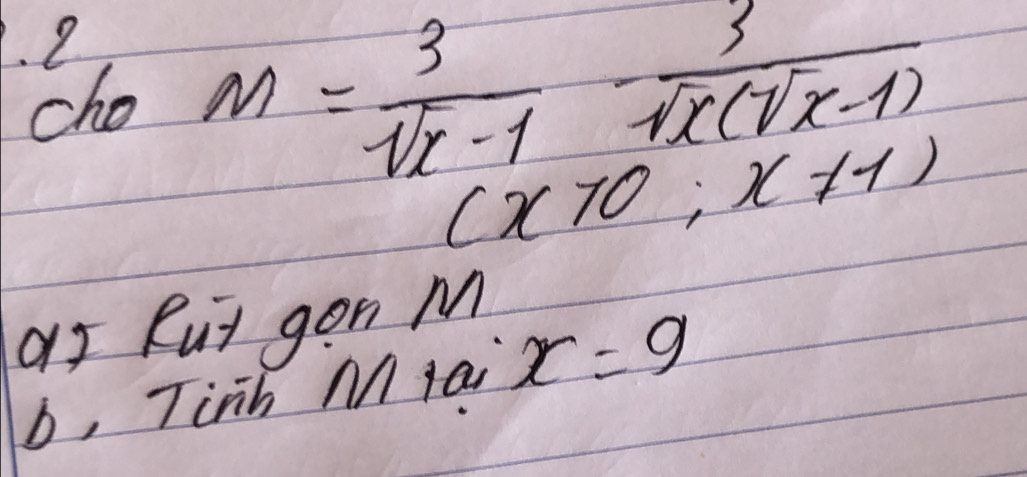 .2
Cho M = 3/(√x - 1) - 3/(√x(√x - 1))
(x > 0 ; x ≠ 1)
a, Rút gọn M
b, Tính M tại x = 9